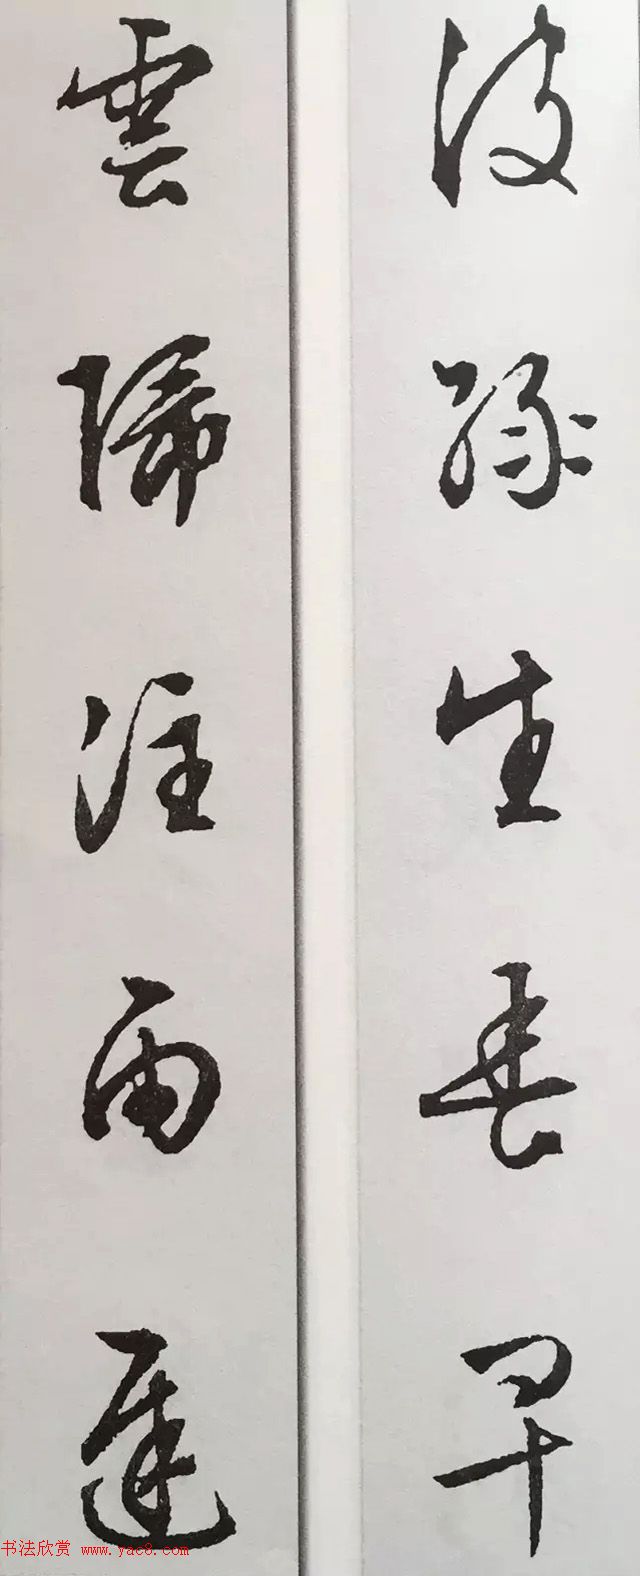 波緑生春早
雲歸注雨遲
书法欣赏 www.yac8.com